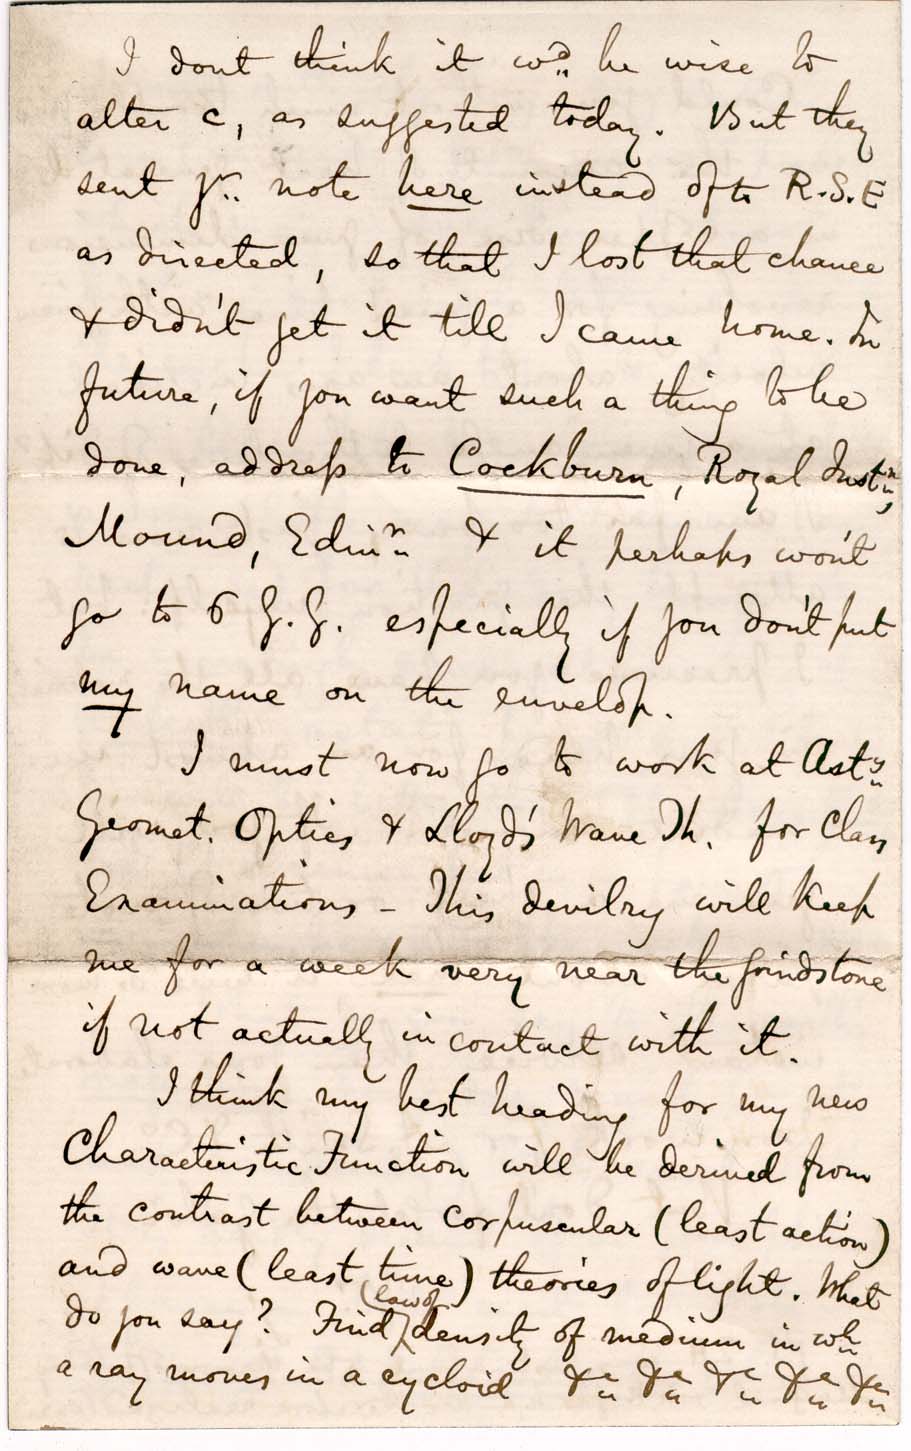 I dont think it wd. be wise to
alter c, as suggested today. But they
sent yr. note here instead of to R.S.E
as directed, so that I lost that chance
& didn't get it till I came home. In
future, if you want such a thing to be
done, address to Cockburn, Royal Instn,
Mound, Edinn & it perhaps won't
go to 6 G.G. especially if you don't put
my name on the envelop.
I must now go to work at Asty
Geomet. Optics & Lloyd's Wave Th. for Class
Examinations - This devilry will keep
me for a week very near the grindstone
if not actually in contact with it.
I think my best heading for my new
Characteristic Function will be derived from
the contrast between corpuscular (least action)
and wave (least time) theories of light. What
do you say? Find law of density of medium in wh
a ray moves in a cycloid &c &c &c &c &c